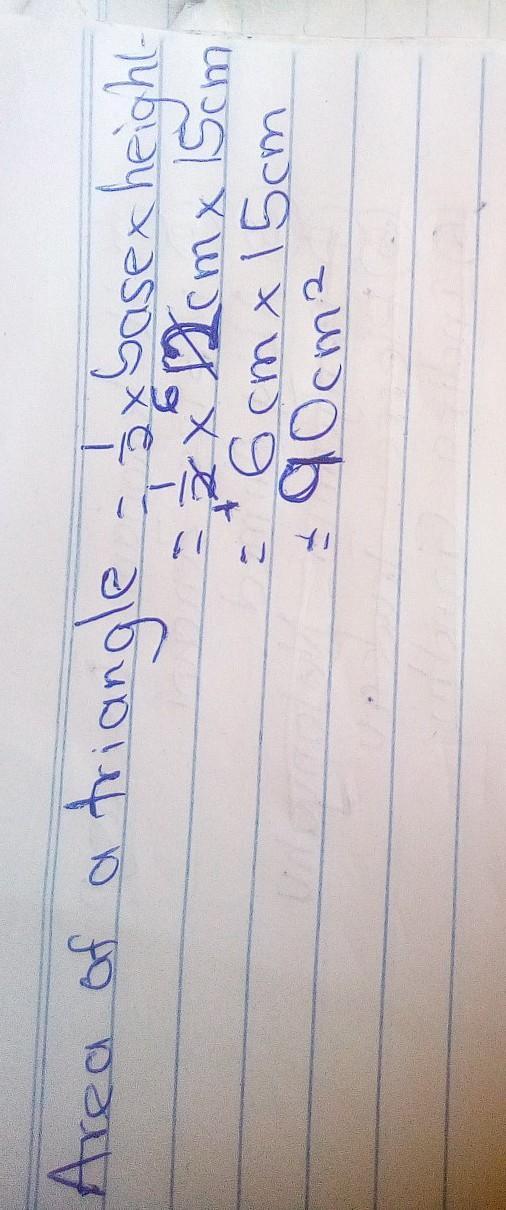 Area of a triangle = 1/2 x base x height
= 1/2 x 12cm x 15cm
= 6cm x 15cm
= 90cm²